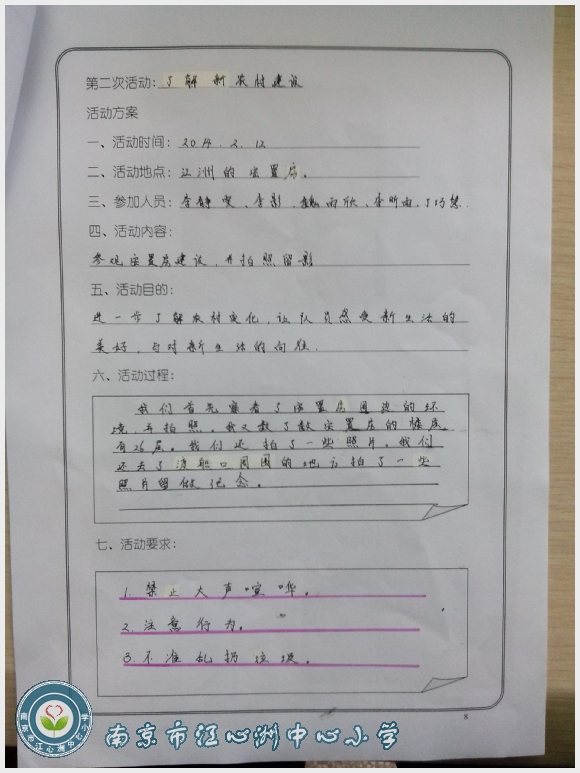 第二次活动：了解新农村建设
活动方案
一、活动时间：2014.2.12
二、活动地点：江洲的安置房。
三、参加人员：李静雯、李影、魏雨欣、李昕雨、丁巧慧.
四、活动内容：
参观安置房建设，并拍照留影
五、活动目的：
进一步了解农村变化，让队员感受新生活的
美好，与对新生活的向往.
六、活动过程：
我们首先察看了安置房周边的环
境，再拍照。我又数了数安置房的楼层
有26层。我们还拍了一些照片。我们
还去了渡船口周围的地方拍了一些
照片留做纪念。
七、活动要求：
1.禁止大声喧哗。
2.注意行为。
3.不准乱扔垃圾。
8
南京市江心洲中心小学
南京市江心洲中心小学